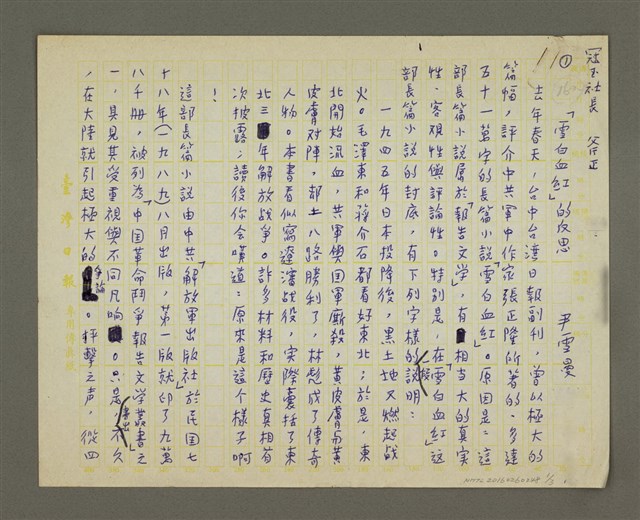 冠玉社長 斧正
①
「雪白血紅」的反思
尹雪曼
去年春天，台中台灣日報副刊，曾以極大的
篇幅，評介中共軍中作家張正隆所著的、多達
五十一萬字的長篇小說「雪白血紅」。原因是：這
部長篇小說屬於「報告文學」，有相當大的真實
性、客觀性與評論性。特別是，在「雪白血紅」這
部長篇小說的封底，有下列字樣的說明：
一九四五年日本投降後，黑土地又燃起戰
火。毛澤東和蔣介石都看好東北；於是，東
北開始流血，共軍與國軍廝殺，黃皮膚与黃
皮膚对陣，却土八路勝利了，林彪成了傳奇
人物。本書看似寫遼瀋战役，实際囊括了東
北三年解放战爭。許多材料和歷史真相首
次披露；讀後你会嘆道：原來是這个樣子啊
！
這部長篇小說由中共「解放軍出版社」於民国七
十八年（一九八九）八月出版，第一版就印了九萬
八千冊，被列為「中国革命鬥爭報告文学叢書」之
一，具見其受重視與不同凡响。只是，書出不久
，在大陸就引起極大的爭論。抨擊之声，從四
臺灣日報
NMTL20160060048 1/3